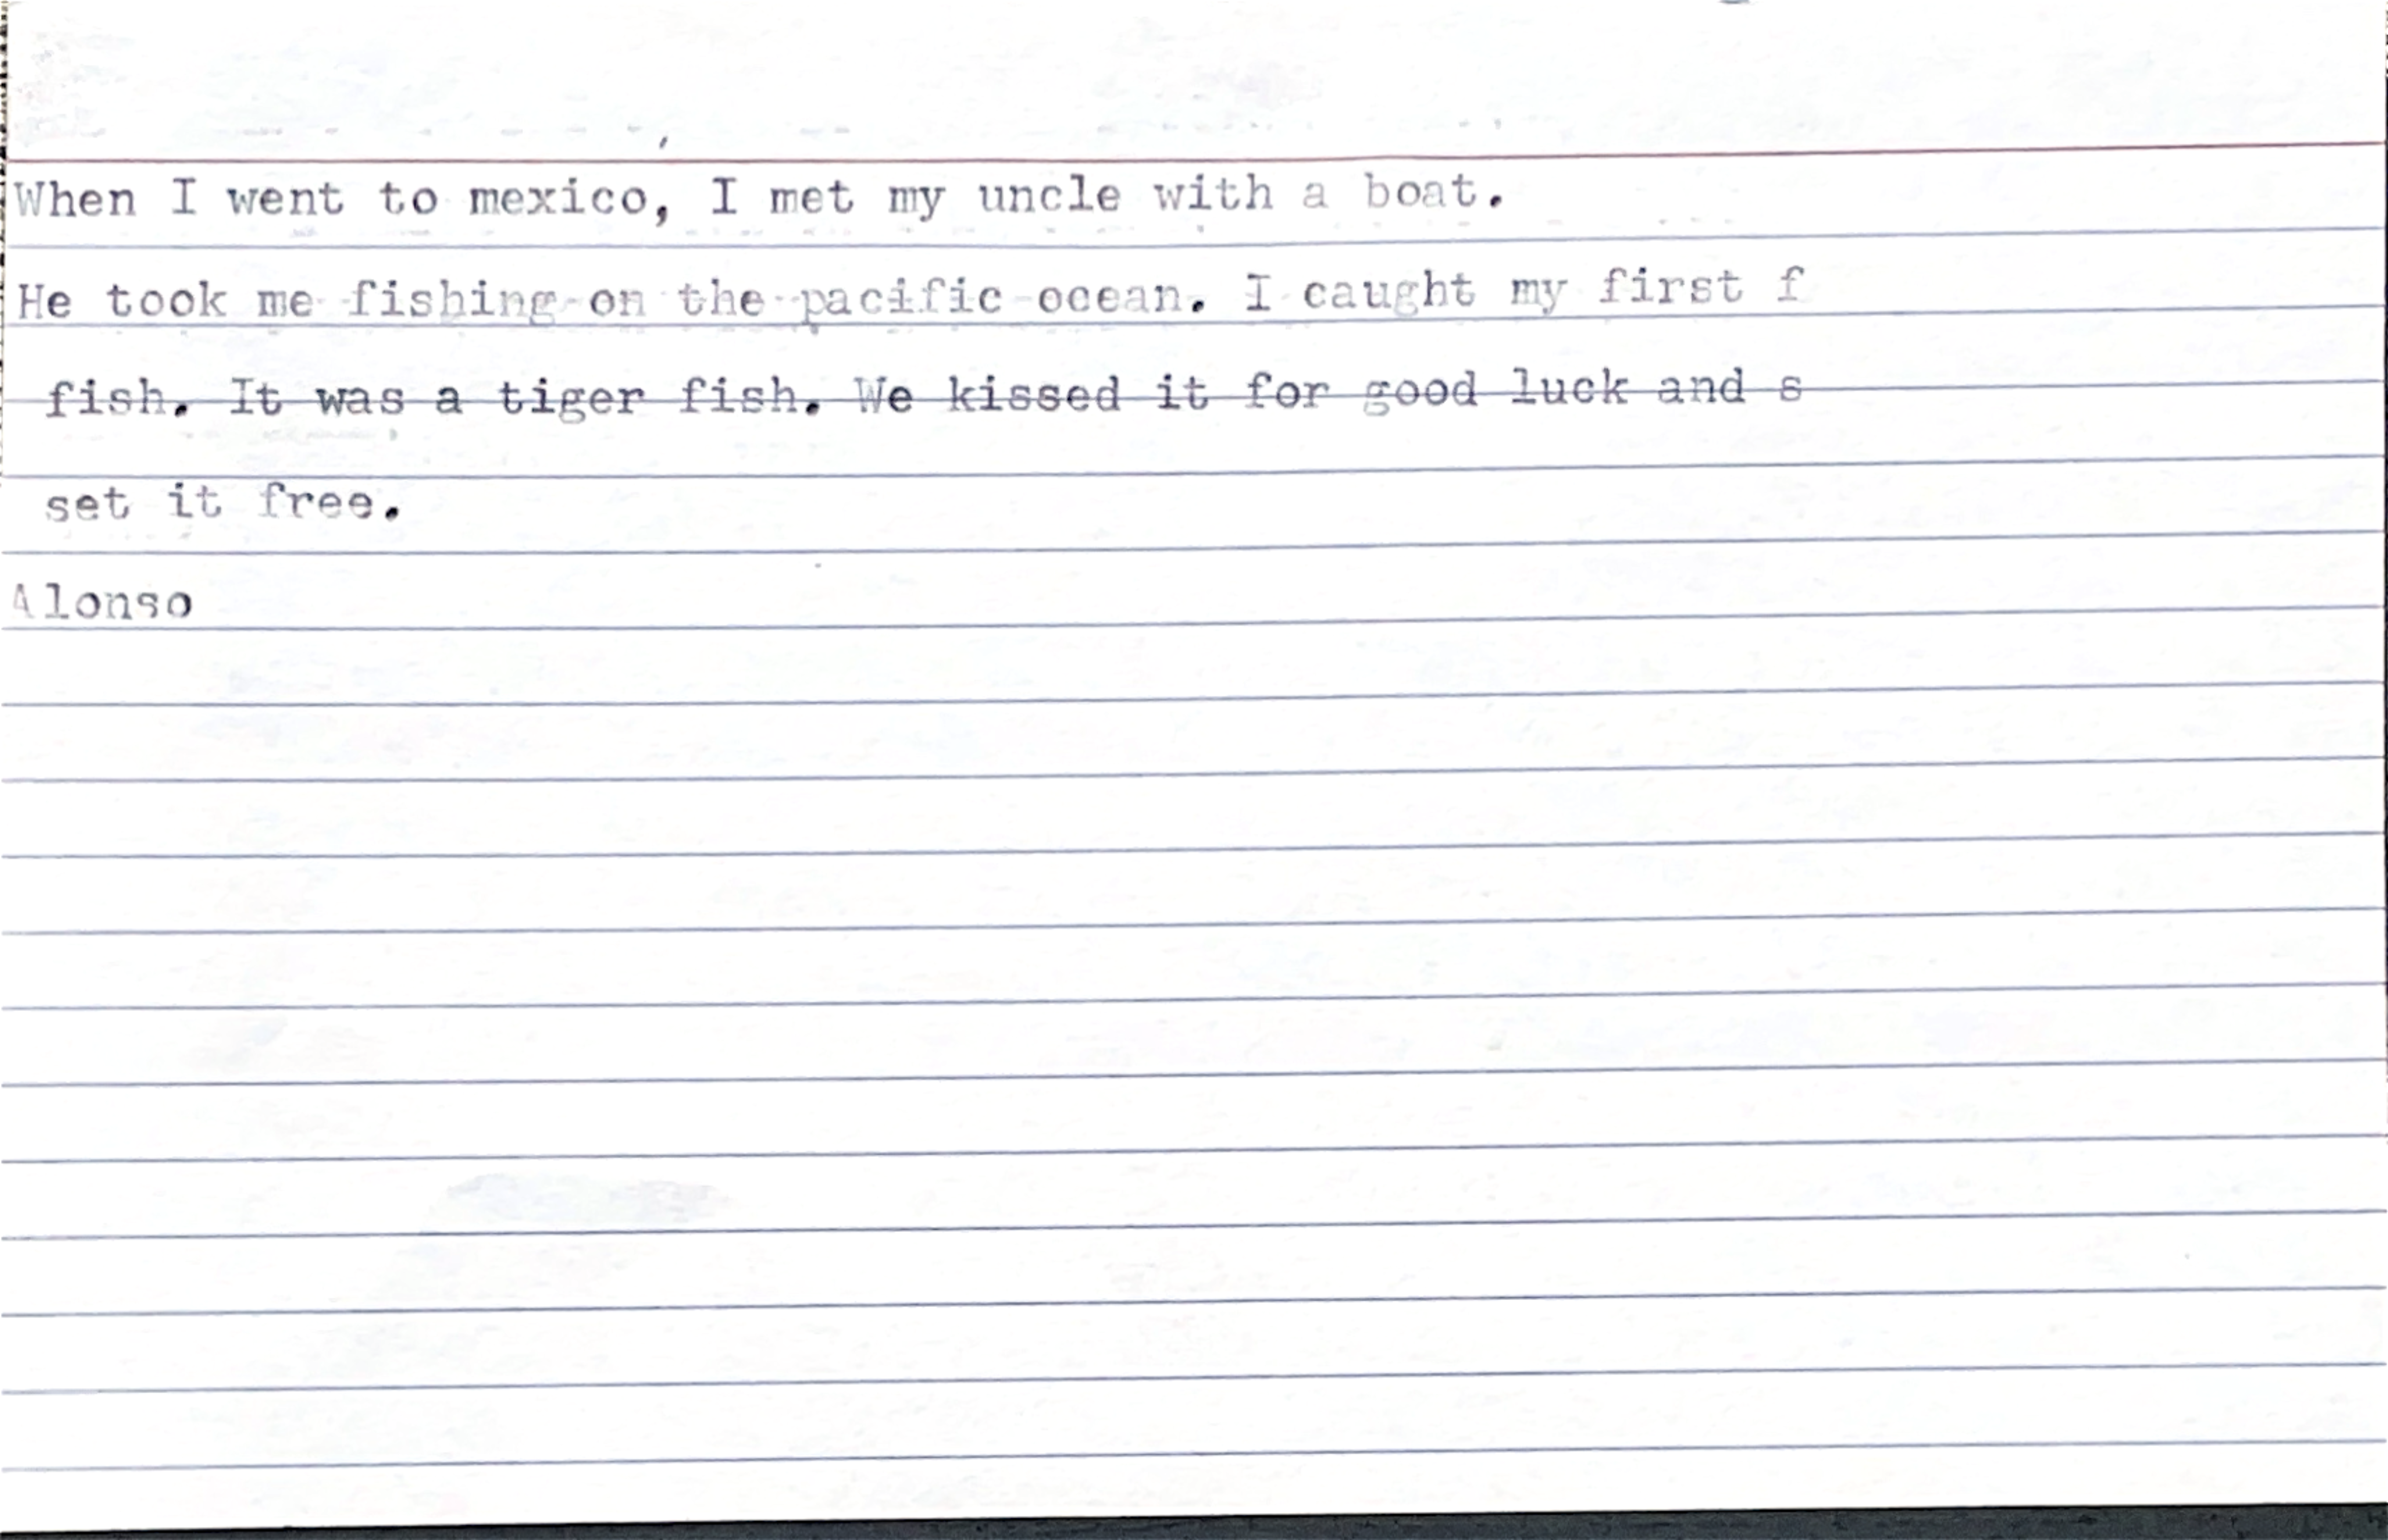 When I went to mexico, I met my uncle with a boat.
He took me fishing on the pacific ocean. I caught my first f
fish. It was a tiger fish. We kissed it for good luck and s
set it free.
Alonso